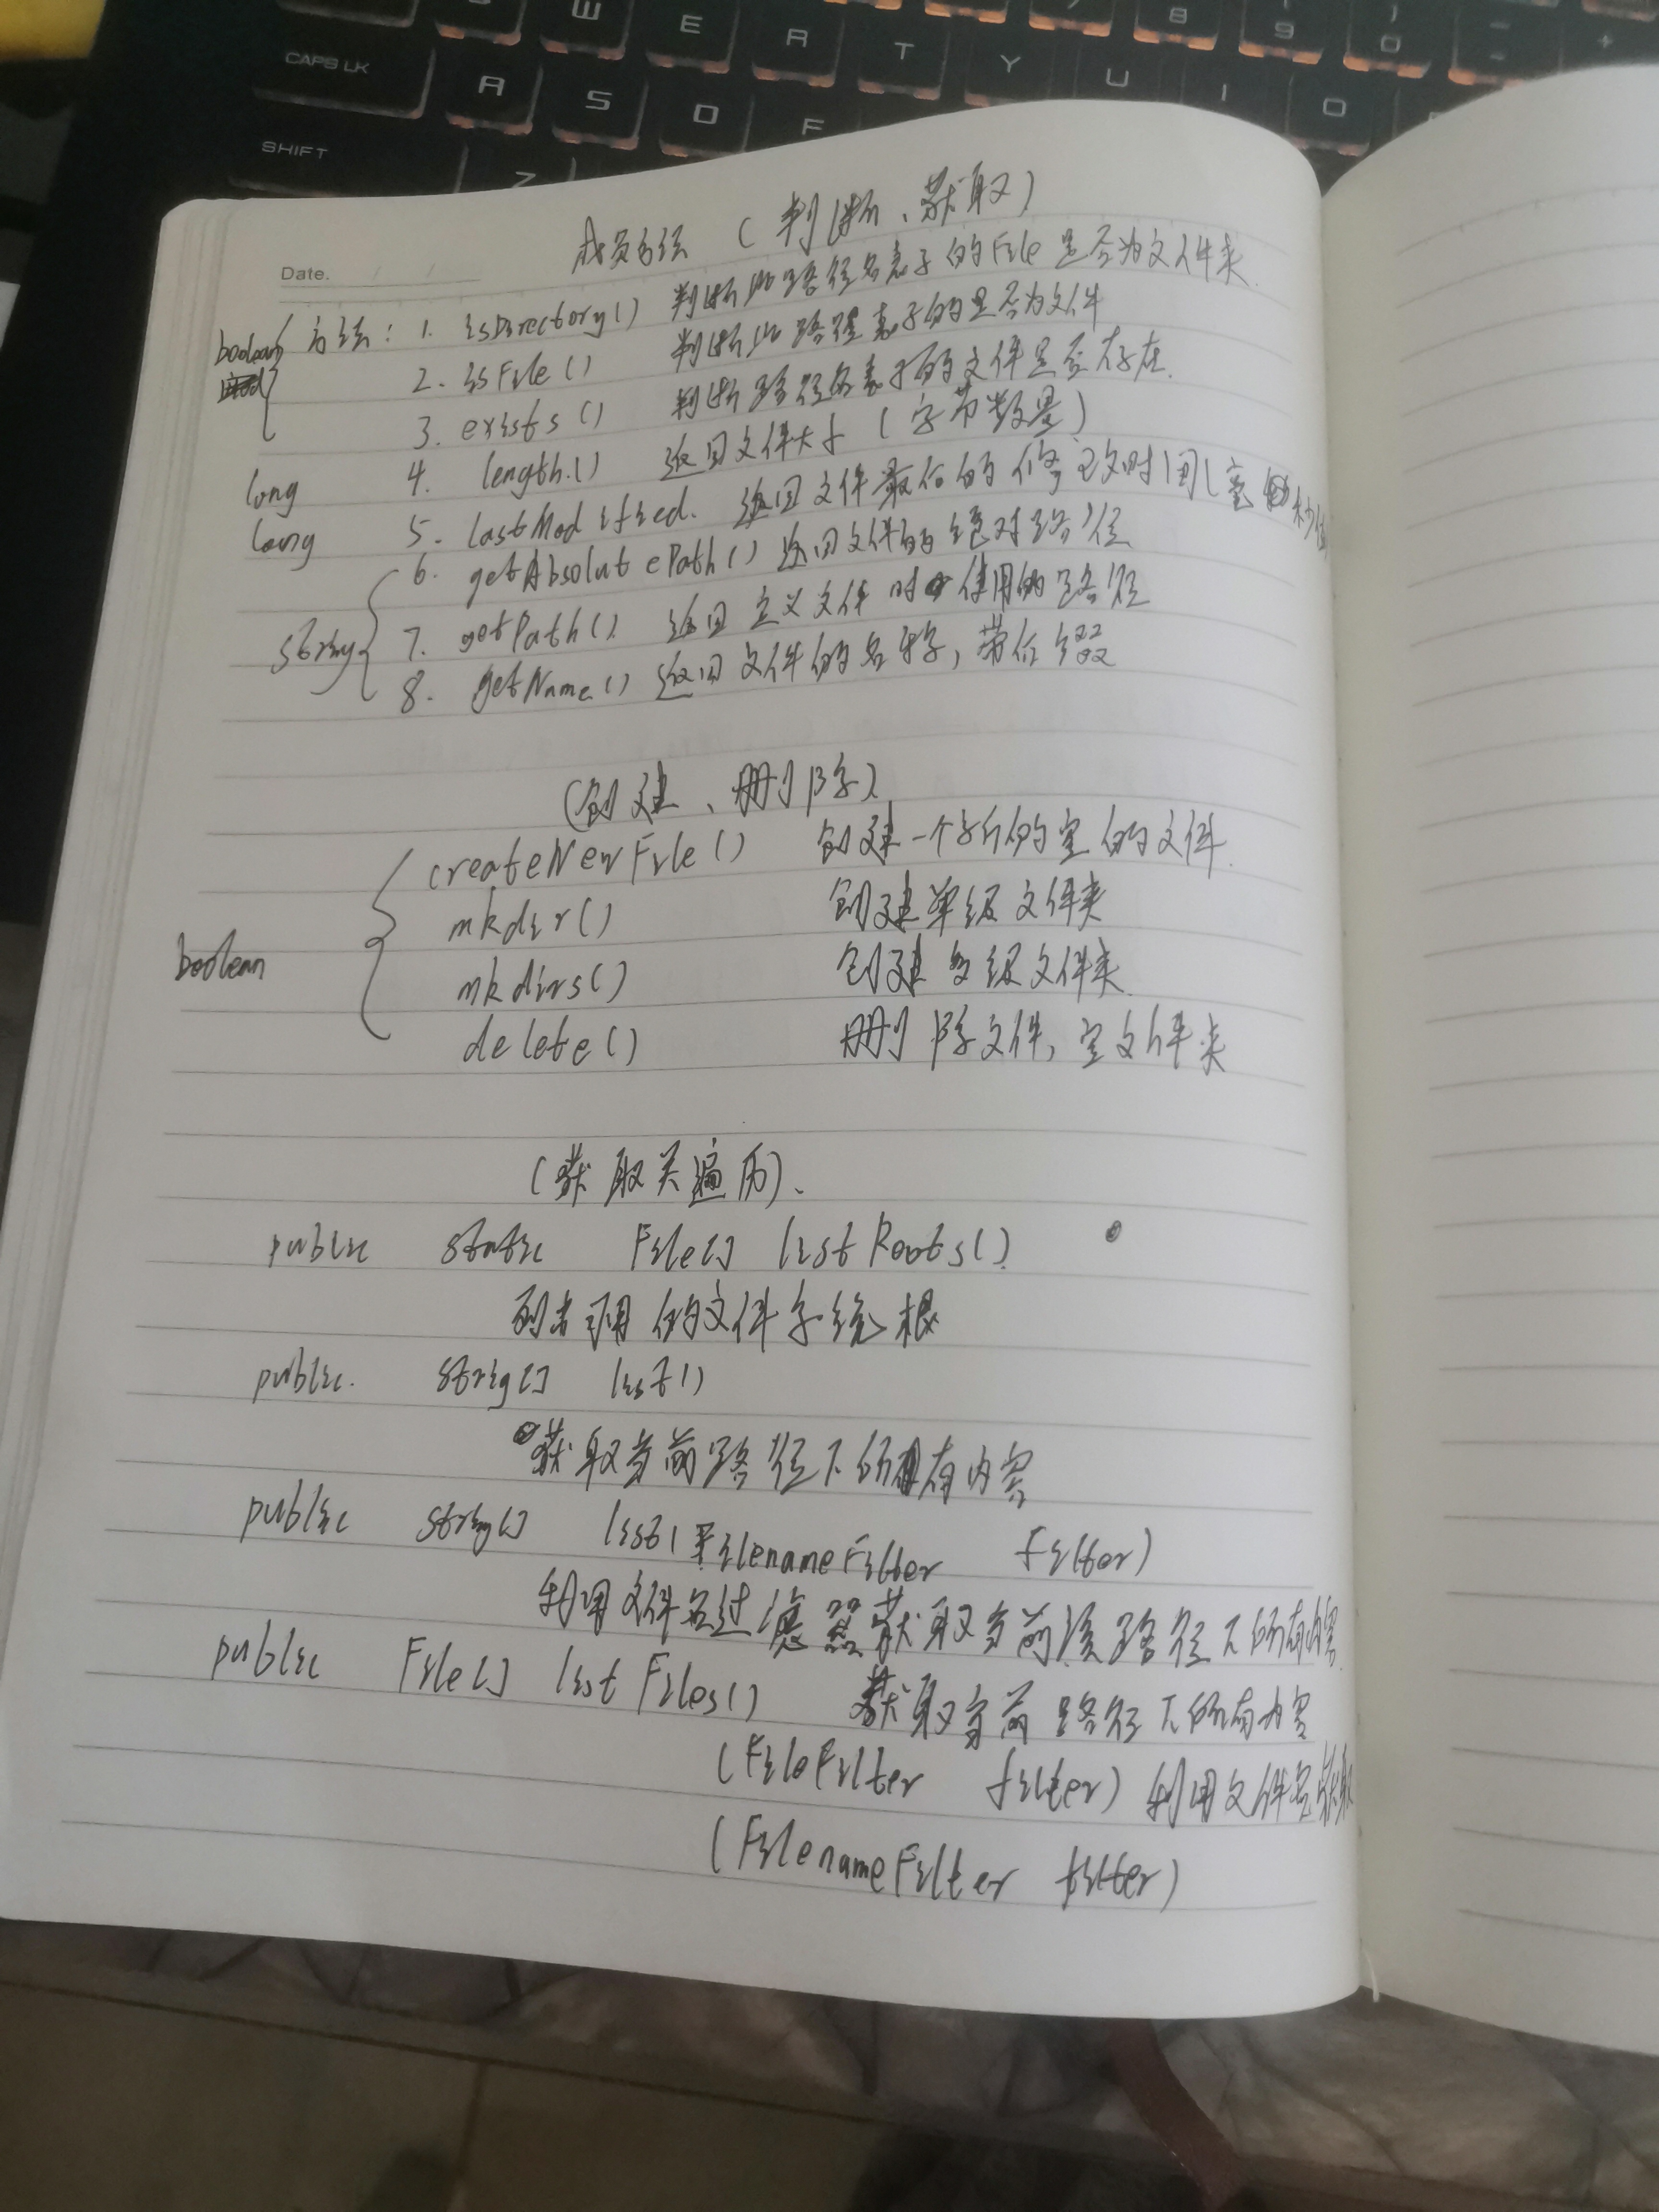 W E R T Y 7 8 9 0 - +
CAPS LK A S D F U I O
SHIFT Z
成员方法 (判断、获取)
Date. / /
boolean 方法: 1. isDirectory() 判断此路径名表示的File是否为文件夹
2. isFile() 判断此路径表示的是否为文件
3. exists() 判断路径名表示的文件是否存在.
long 4. length.() 返回文件大小 (字节数量)
long 5. lastModified. 返回文件最后的修改时间(毫秒值
6. getAbsolutePath() 返回文件的绝对路径
String 7. getPath() 返回定义文件时使用的路径
8. getName() 返回文件的名字, 带后缀
(创建、删除)
createNewFile() 创建一个新的空的文件.
mkdir() 创建单级文件夹
boolean mkdirs() 创建多级文件夹.
delete() 删除文件, 空文件夹
(获取关遍历).
public static File[] listRoots()
列出可用的文件系统根
public. String[] list()
获取当前路径下所有内容
public String[] list(FilenameFilter filter)
利用文件名过滤器获取当前该路径下所有内容.
public File[] listFiles() 获取当前路径下所有内容
(FileFilter filter) 利用文件名获取
(FilenameFilter filter)